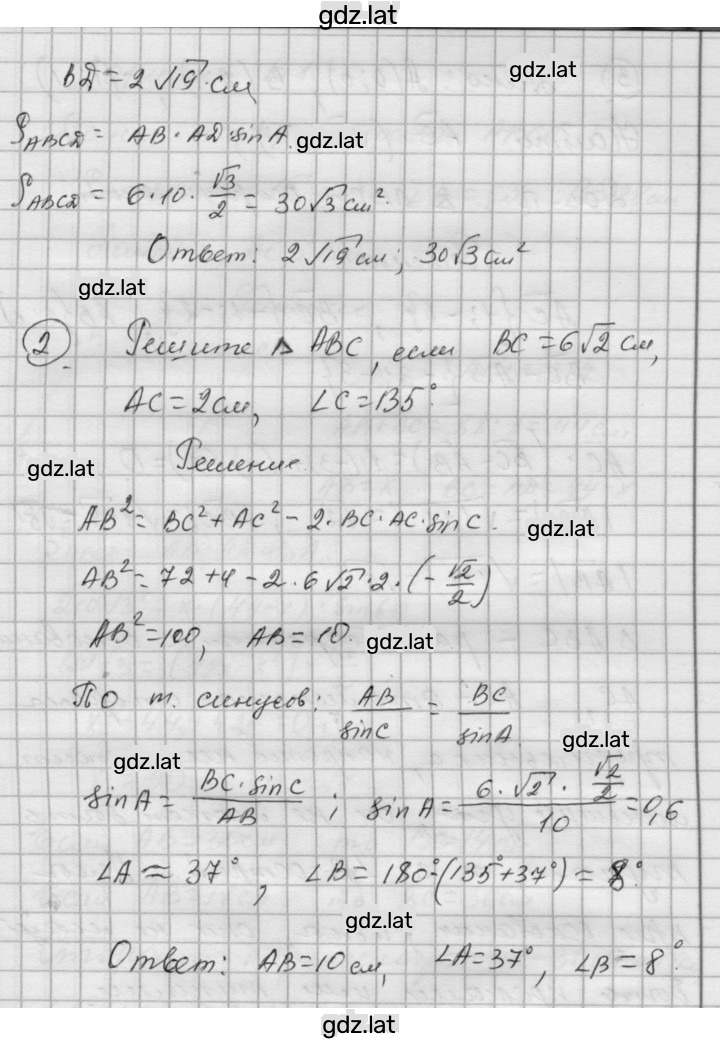 gdz.lat
BD = 2√19 см
gdz.lat
S_ABCD = AB · AD · sin A.
gdz.lat
S_ABCD = 6 · 10 · √3/2 = 30√3 см².
Ответ: 2√19 см; 30√3 см²
gdz.lat
2. Решите △ ABC, если BC = 6√2 см,
AC = 2 см, ∠C = 135°.
gdz.lat
Решение.
AB² = BC² + AC² − 2 · BC · AC · sin C.
gdz.lat
AB² = 72 + 4 − 2 · 6√2 · 2 · (−√2/2)
AB² = 100, AB = 10.
gdz.lat
ПО т. синусов: AB/sin C = BC/sin A.
gdz.lat
gdz.lat
sin A = BC · sin C/AB ; sin A = 6 · √2 · √2/2/10 = 0,6
∠A ≈ 37°, ∠B = 180° − (135° + 37°) ≈ 8°.
gdz.lat
Ответ: AB = 10 см, ∠A = 37°, ∠B = 8°.
gdz.lat